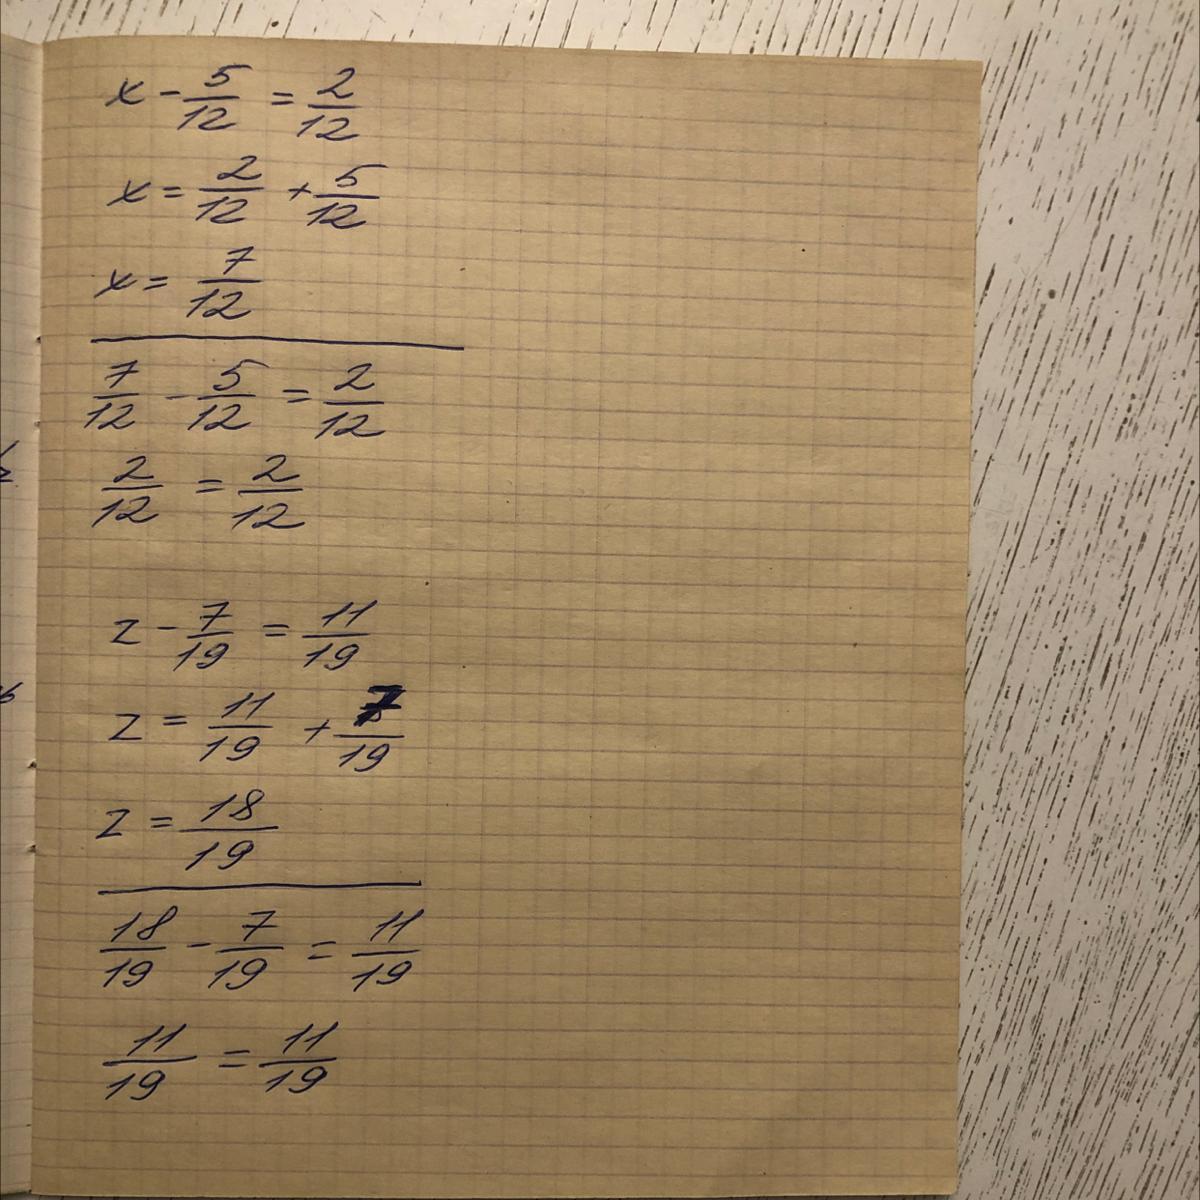 x - 5/12 = 2/12
x = 2/12 + 5/12
x = 7/12
7/12 - 5/12 = 2/12
2/12 = 2/12
z - 7/19 = 11/19
z = 11/19 + 7/19
z = 18/19
18/19 - 7/19 = 11/19
11/19 = 11/19